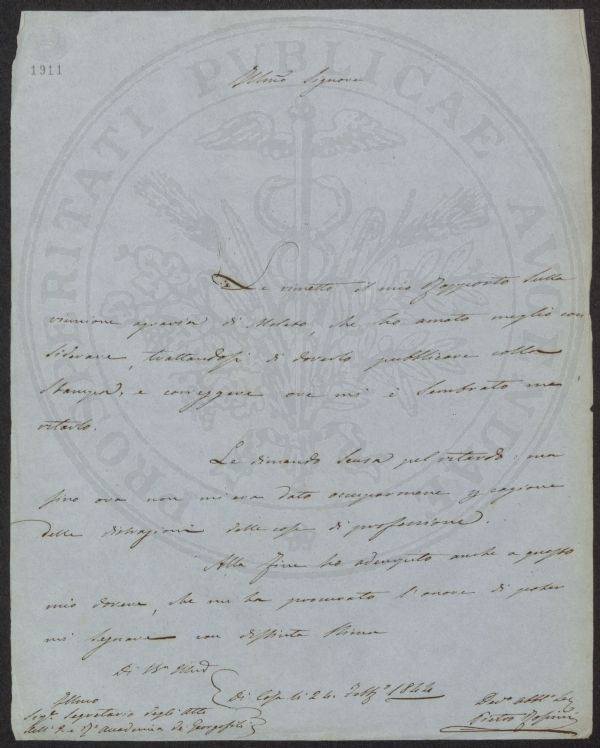 1911
PROSPERITATI PUBLICAE AUGENDAE
Illmo Signore
Le rimetto il mio Rapporto sulla
riunione agraria di Meleto, che ho amato meglio con
siderare, trattandosi di doverlo pubblicare colla
Stampa, e correggere ove mi è sembrato me
ritarlo.
Le dimando scusa pel ritardo: ma
fino ora non mi era dato occuparmene per ragione
delle distrazioni delle cose di professione.
Alla fine ho adempito anche a questo
mio dovere, che mi ha procurato l'onore di poter
mi segnare con distinta stima
Di V.ra Illma
Di Casa li 24 1844
Illmo
Sig.e Segretario degli Atti
dell'I. e R. Accademia dei Georgofili
Dev.o obbl.o
Pietro